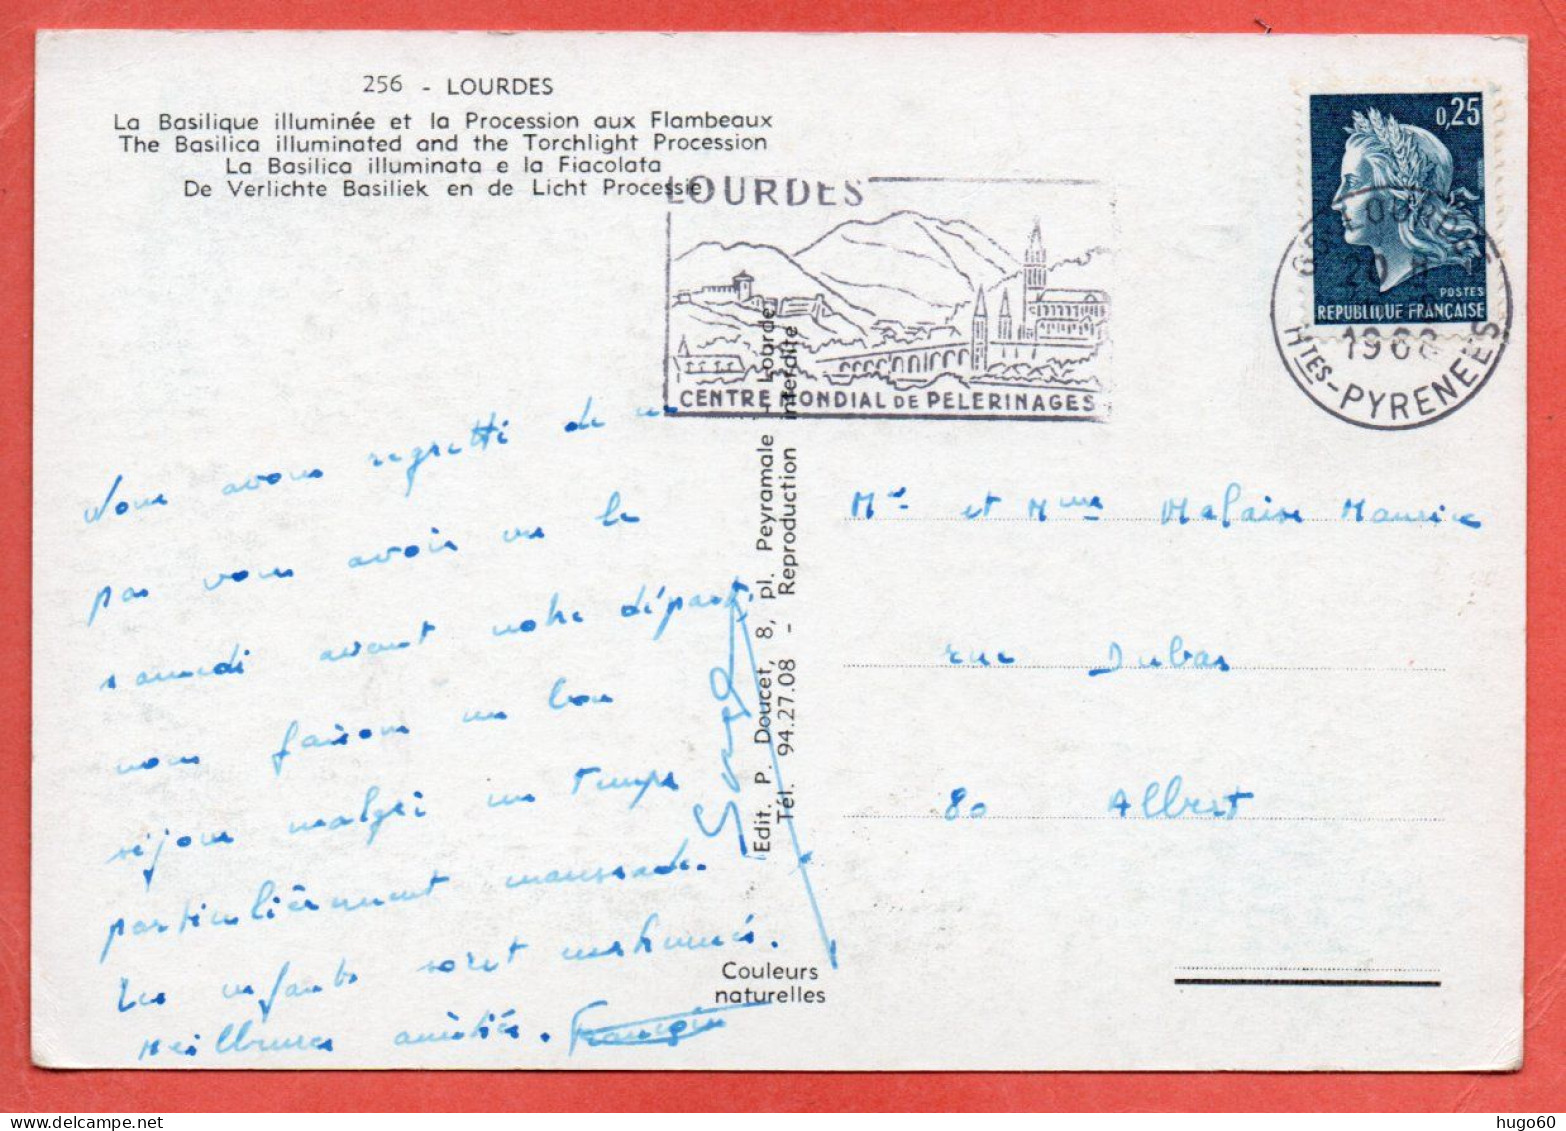 256 - LOURDES
La Basilique illuminée et la Procession aux Flambeaux
The Basilica illuminated and the Torchlight Procession
La Basilica illuminata e la Fiacolata
De Verlichte Basiliek en de Licht Processie
LOURDES
CENTRE MONDIAL DE PELERINAGES
0,25
POSTES
REPUBLIQUE FRANÇAISE
LOURDES
20
HTES-PYRENEES
Nous avons regretté de ne
pas vous avoir vu le
samedi avant notre départ.
nous faisons un bon
séjour malgré un temps
particulièrement maussade.
Les enfants sont enrhumés.
Meilleures amitiés. Françoise
Serge
Edit. P. Doucet, 8, pl. Peyramale - Lourdes
Tél. 94.27.08 - Reproduction interdite
Couleurs
naturelles
Mr et Mme Malaise Maurice
rue Dubas
80 Albert
hugo60